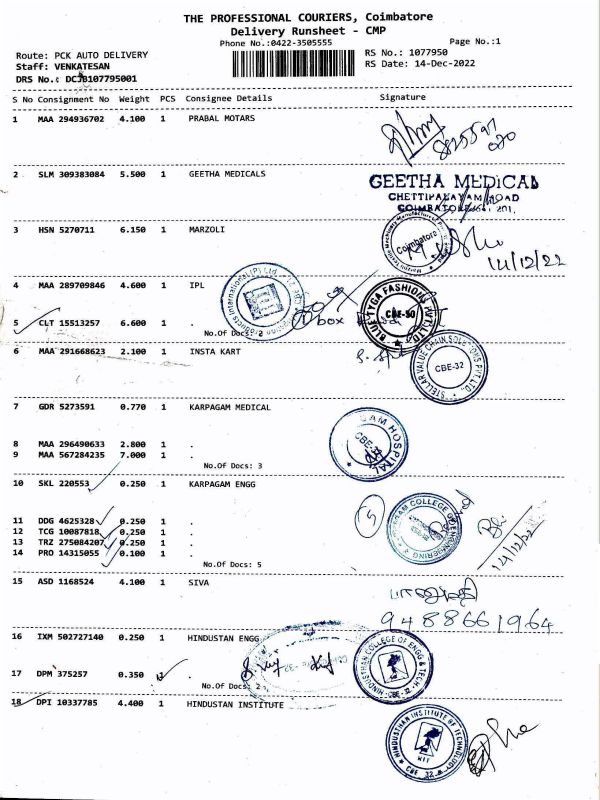 THE PROFESSIONAL COURIERS, Coimbatore
Delivery Runsheet - CMP
Phone No.:0422-3505555
Page No.:1
Route: PCK AUTO DELIVERY
RS No.: 1077950
Staff: VENKATESAN
RS Date: 14-Dec-2022
DRS No.: DCJB107795001
S No Consignment No Weight PCS Consignee Details Signature
1 MAA 294936702 4.100 1 PRABAL MOTARS
2 SLM 309383084 5.500 1 GEETHA MEDICALS
GEETHA MEDICAL
CHETTIPALAYAM ROAD
3 HSN 5270711 6.150 1 MARZOLI
Coimbatore
14/12/22
4 MAA 289709846 4.600 1 IPL
BLUE TYGA FASHIONS PVT. LTD.
CBE-50
5 CLT 15513257 6.600 1 .
No.Of Docs: 2
box
6 MAA 291668623 2.100 1 INSTA KART
STELLAR VALUE CHAIN SOLUTIONS PVT.LTD.
CBE-32
7 GDR 5273591 0.770 1 KARPAGAM MEDICAL
HOSPITAL
8 MAA 296490633 2.800 1 .
9 MAA 567284235 7.000 1 .
No.Of Docs: 3
10 SKL 220553 0.250 1 KARPAGAM ENGG
5
COLLEGE OF ENGINEERING
11 DDG 4625328 0.250 1 .
12 TCG 10087818 0.250 1 .
13 TRZ 275084207 0.250 1 .
14 PRO 14315055 0.100 1 .
No.Of Docs: 5
14/12/22
15 ASD 1168524 4.100 1 SIVA
9488661964
16 IXM 502727140 0.250 1 HINDUSTAN ENGG
HINDUSTHAN COLLEGE OF ENGG & TECH
CBE-32
17 DPM 375257 0.350 .
No.Of Docs: 2
18 DPI 10337785 4.400 1 HINDUSTAN INSTITUTE
HINDUSTHAN INSTITUTE OF TECHNOLOGY
HIT
CBE 32